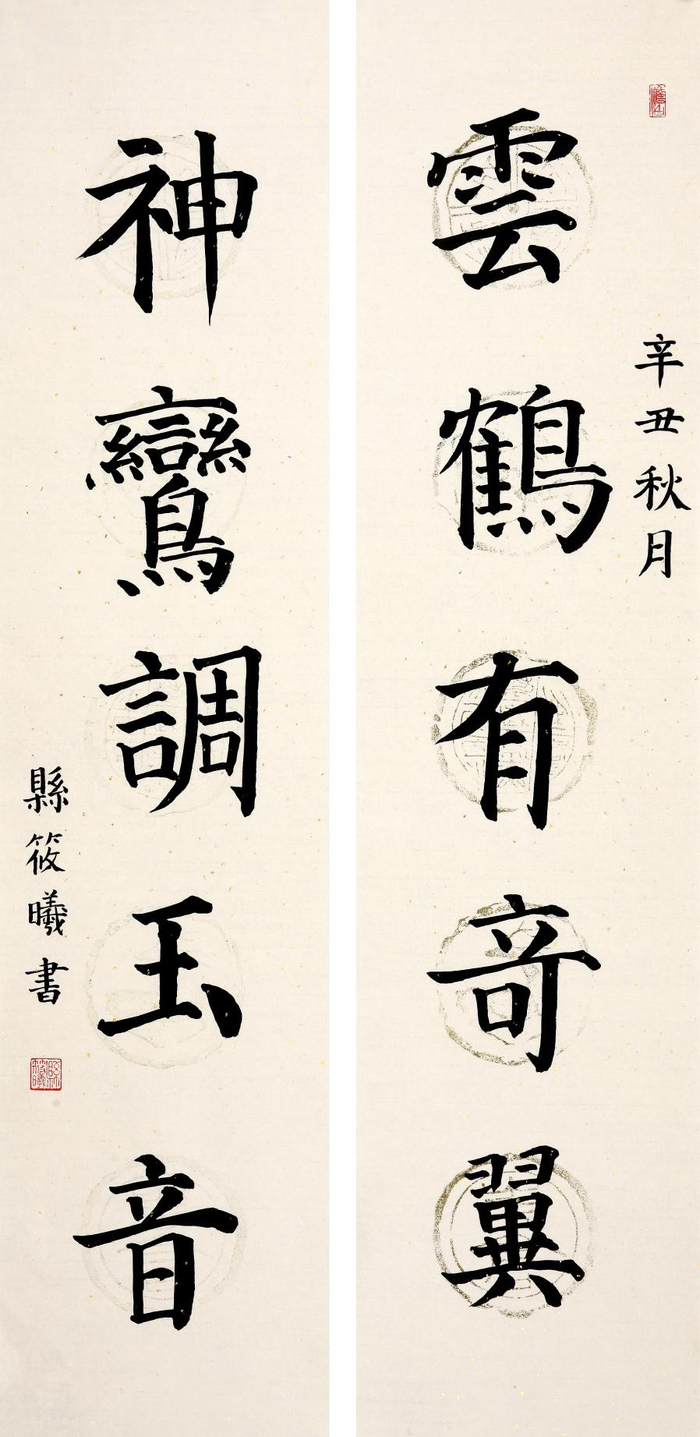 辛丑秋月
雲鶴有奇翼
神鸞調玉音
縣筱曦書